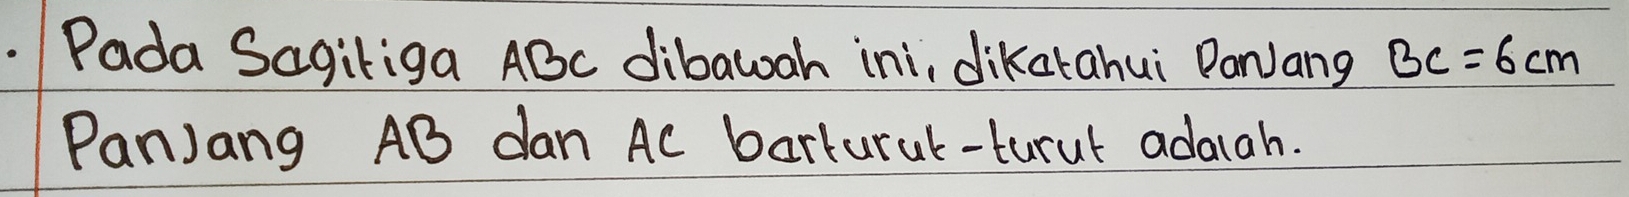 . Pada Sagitiga ABC dibawah ini, dikatahui Panjang BC = 6 cm
Panjang AB dan AC barturut-turut adalah.